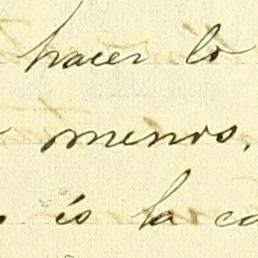 hacer lo
menos.
is la ca